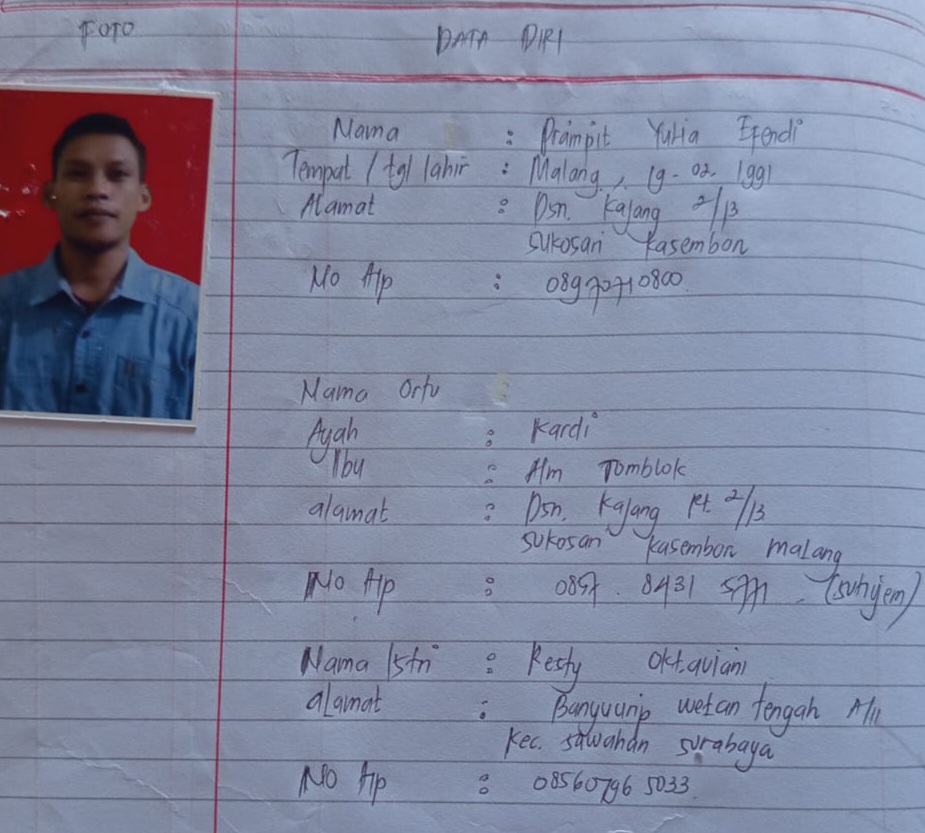 FOTO DATA DIRI
Nama : Prampit Yulia Efendi
Tempat / tgl lahir : Malang, 19-02-1991
Alamat : Dsn. Kajang 2/13
sukosari kasembon
No Hp : 089707710800
Nama Ortu :
Ayah : Kardi
Ibu : Alm Tomblok
alamat : Dsn. Kajang Rt. 2/13
sukosari kasembon malang
No Hp : 0857. 8431 5771 (suhyem)
Nama Istri : Resty Oktaviani
alamat : Banyuurip wetan tengah
kec. sawahan surabaya
No Hp : 08560796 5033